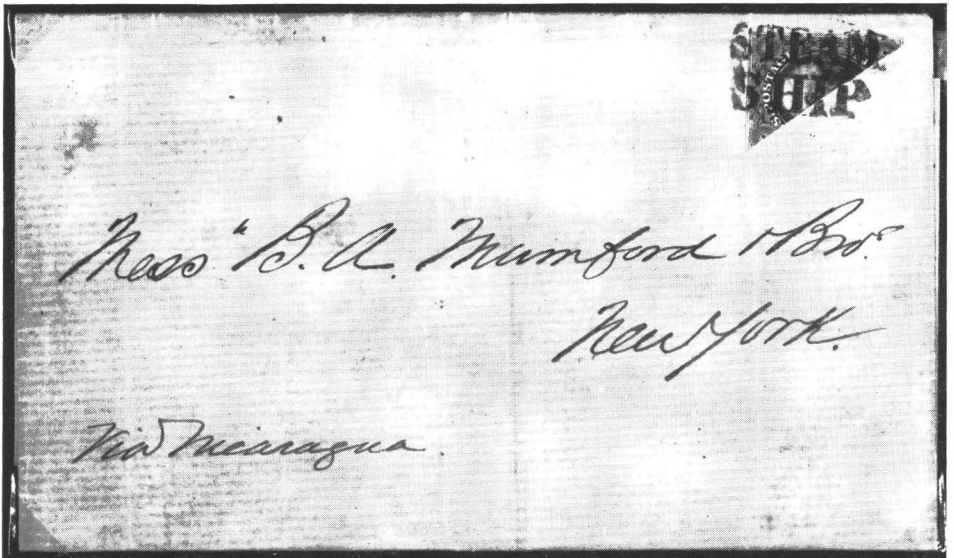 STEAM
SHIP
POSTAGE
Mess" B. A. Mumford & Bro.
New York.
Via Nicaragua.